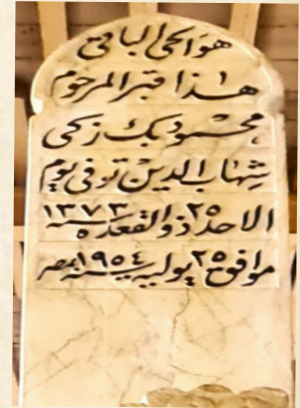 هو الحي الباقي
هذا قبر المرحوم
محمود بك زكي
شهاب الدين توفي يوم
الاحد ٢٥ ذو القعده ١٣٧٣
موافق ٢٥ يوليه سنة ١٩٥٤ بمصر